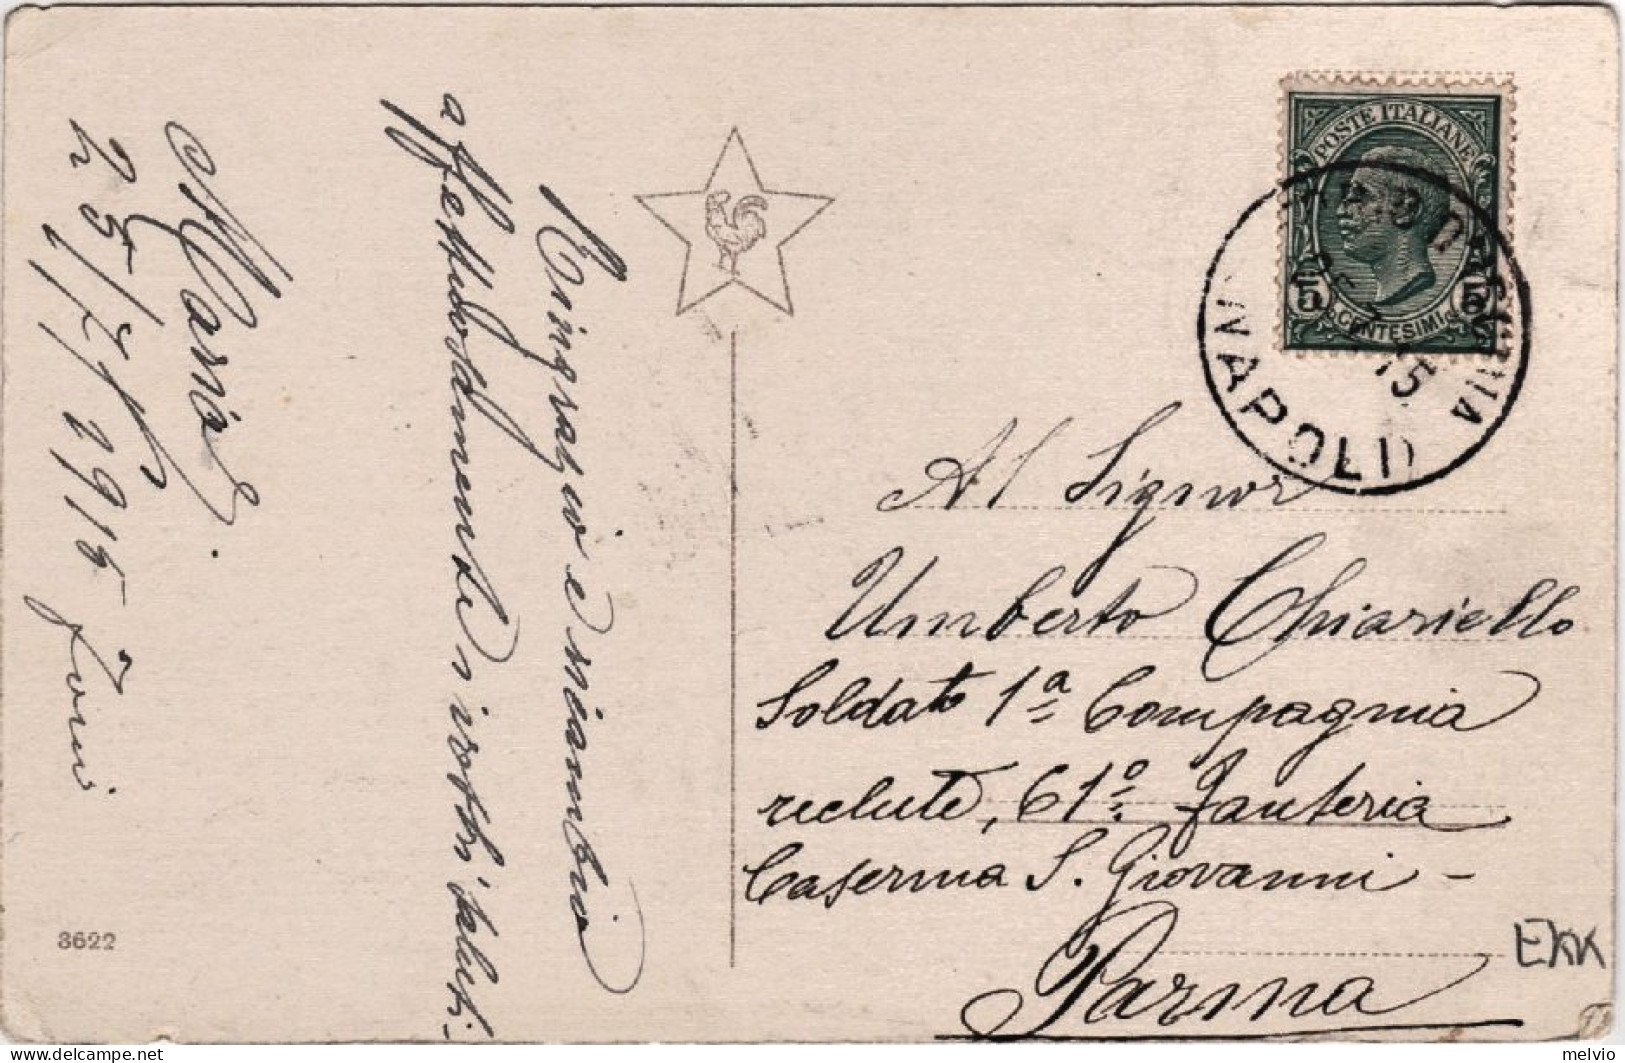 Ringrazio e ricambio
affettuosamente i vostri saluti.
Maria
25/7/1915
POSTE ITALIANE
5 5
CENTESIMI
NAPOLI
15
Al Signor
Umberto Chiariello
Soldato 1ª Compagnia
reclute, 61º Fanteria
Caserma S. Giovanni -
Parma
3622
EKK
melvio